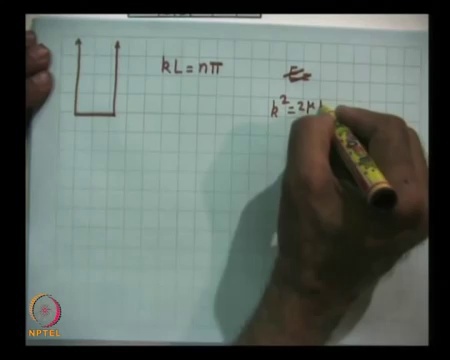 kL = nπ
k² = 2μ
NPTEL